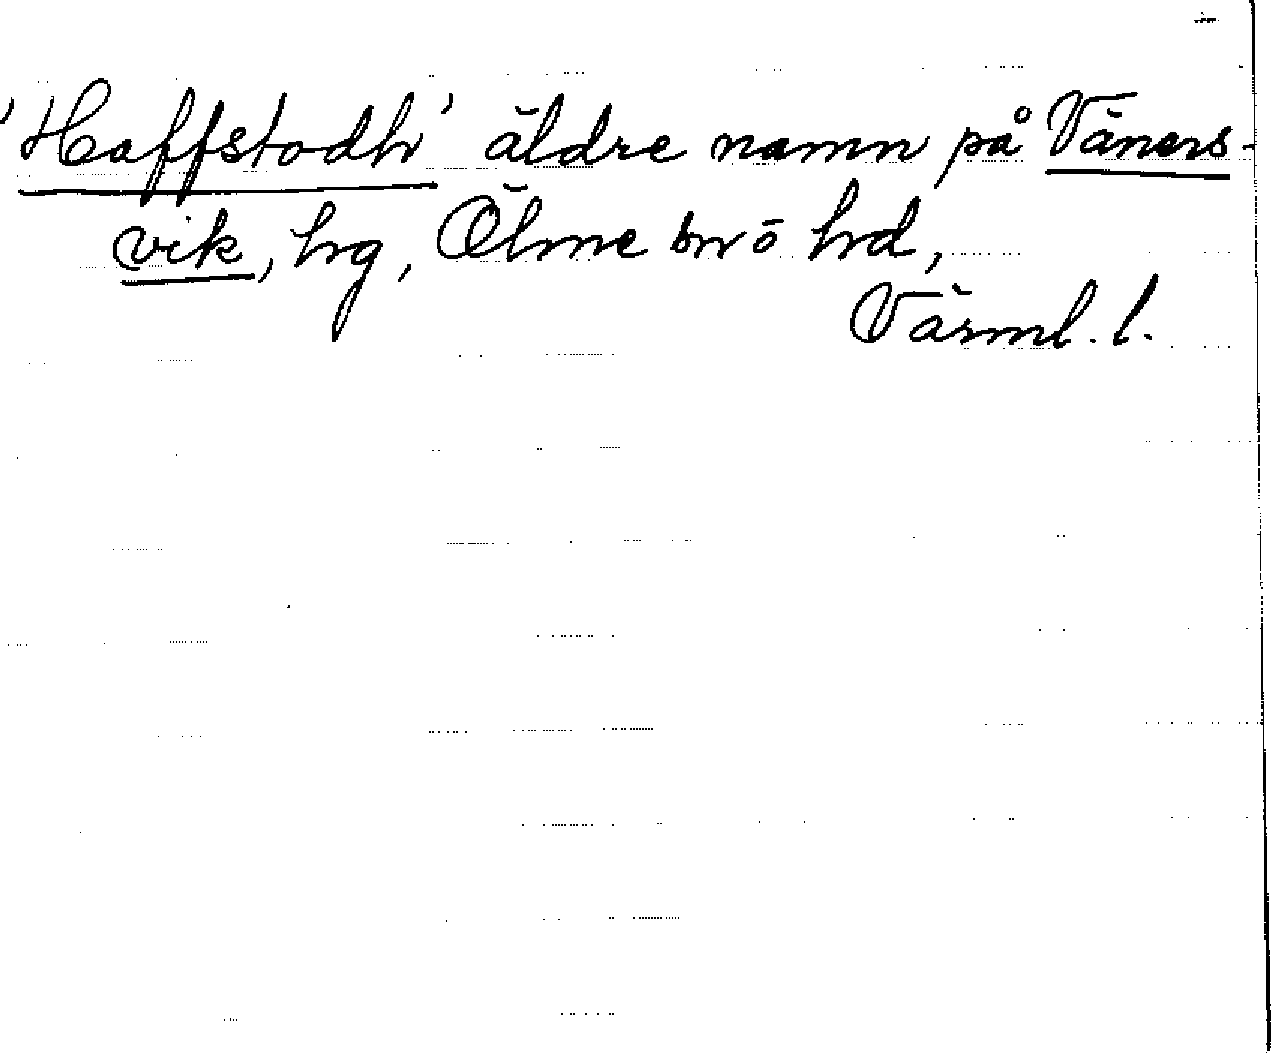 'Haffstodh' äldre namn på Väners-
vik, hg, Ölme sn o hd,
Värml. l.